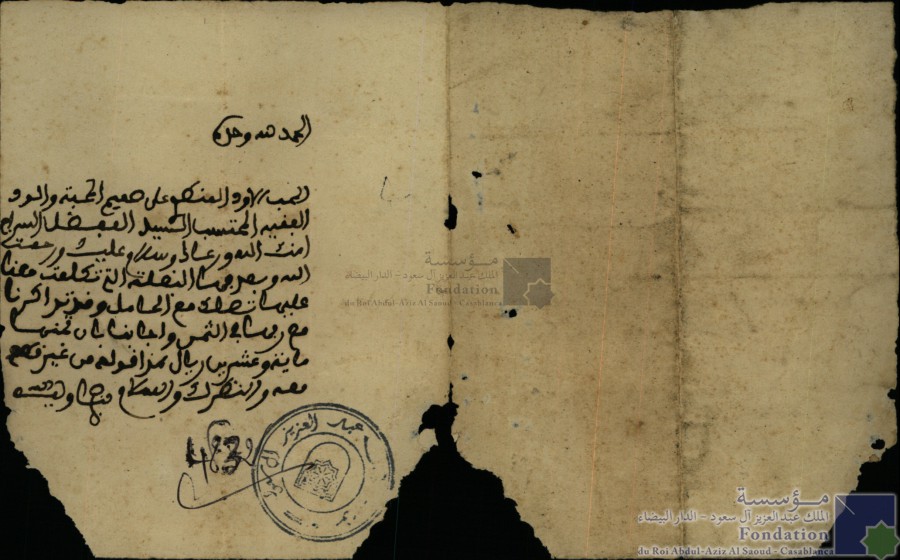 الحمد لله وحده
المحب الاود المنطو على صميم المحبة والود
الفقيه المحتسب السيد السراج
امنك الله ورعاك وسلام عليك ورحمت
الله وبعد فها التى تكلمت معنا
عليها تصلك مع الحامل وقد تذاكرنا
مع ربها في الثمن واجابنا بان ثمنها
ماية وعشرين ريال هذا قوله من غير قطع
معه والنظر لك والسلام
عبد العزيز
483
مؤسسة
الملك عبد العزيز آل سعود - الدار البيضاء
Fondation
du Roi Abdul-Aziz Al Saoud - Casablanca
مؤسسة
الملك عبد العزيز آل سعود - الدار البيضاء
Fondation
du Roi Abdul-Aziz Al Saoud - Casablanca